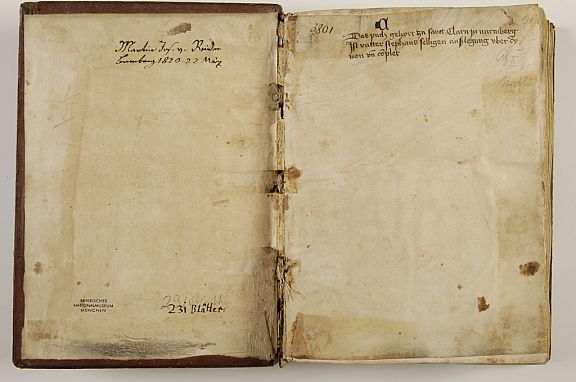 Martin Jos. v. Reider
Bamberg 1820 22 März
BAYERISCHES
NATIONALMUSEUM
MÜNCHEN
231 Blätter
3801
Das puch gehort zu sant Clarn in nurmberg
Ist vatter stephans selligen auslegung vber dy
non vn̄ coplet